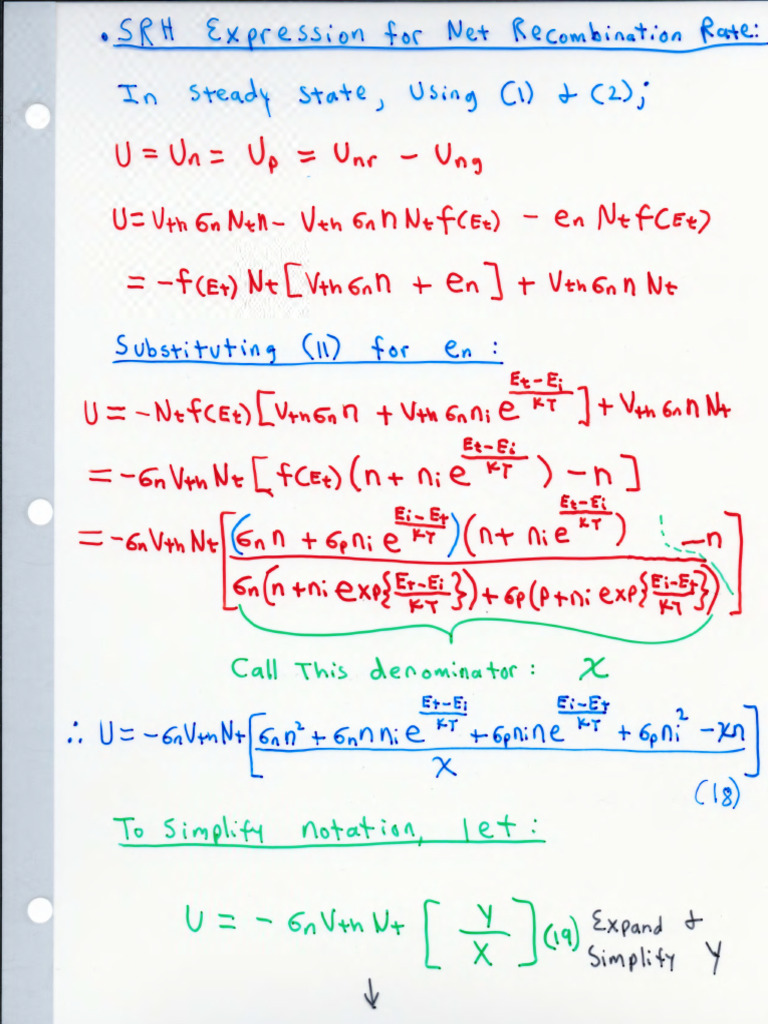 • SRH Expression for Net Recombination Rate:
In steady state, Using (1) & (2);
U = Un = Up = Unr − Ung
U = Vth σn Nt n − Vth σn n Nt f(Et) − en Nt f(Et)
= −f(Et) Nt [Vth σn n + en] + Vth σn n Nt
Substituting (11) for en :
U = −Nt f(Et) [Vth σn n + Vth σn ni e^((Et−Ei)/KT)] + Vth σn n Nt
= −σn Vth Nt [f(Et) (n + ni e^((Et−Ei)/KT)) − n]
= −σn Vth Nt [(σn n + σp ni e^((Ei−Et)/KT)) (n + ni e^((Et−Ei)/KT)) − n]
σn(n + ni exp{(Et−Ei)/KT}) + σp(p + ni exp{(Ei−Et)/KT})
Call This denominator : X
∴ U = −σn Vth Nt [σn n² + σn n ni e^((Et−Ei)/KT) + σp ni n e^((Ei−Et)/KT) + σp ni² − Xn]
X
(18)
To Simplify notation, let :
U = − σn Vth Nt [Y/X] (19) Expand &
Simplify Y
↓